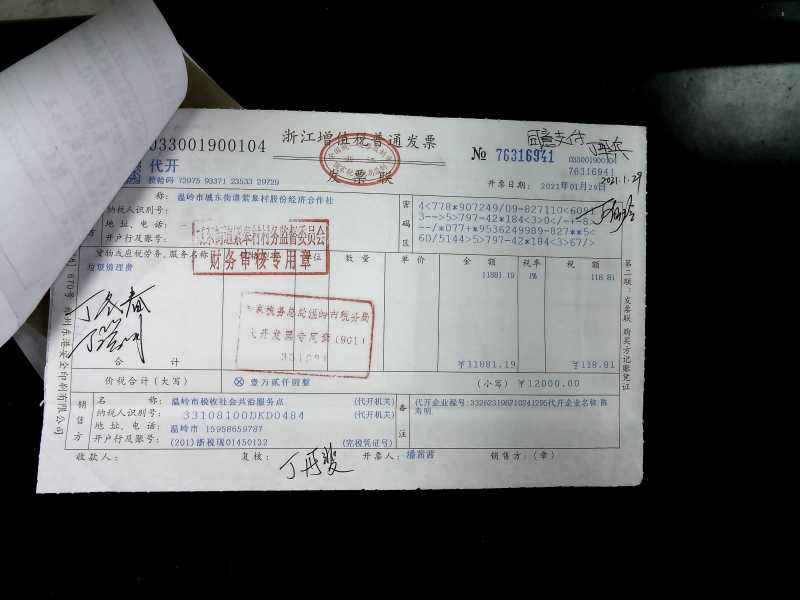 033001900104
浙江增值税普通发票
发票联
代开
№ 76316941
同意支付
033001900104
76316941
校验码 73975 93371 23533 29729
开票日期: 2021年01月29日
2021.1.29
名 称: 温岭市城东街道紫皋村股份经济合作社
纳税人识别号:
地址、电话:
开户行及账号:
密码区
4<778*907249/09-827110<6091
3-->5>797-42*184<3>0</-+-8>
--/*077+9536249989-827**5<
60/5144>5>797-42*184<3>67/>
城东街道紫皋村村务监督委员会
财务审核专用章
货物或应税劳务、服务名称
数 量
单 价
金 额
税率
税 额
垃圾清理费
11881.19
1%
118.81
国家税务总局温岭市税务局
代开发票专用章(SG1)
合 计
¥11881.19
¥118.81
价税合计(大写)
壹万贰仟圆整
(小写) ¥12000.00
销售方
名 称: 温岭市税收社会共治服务点
(代开机关)
纳税人识别号: 33108100DKD0484
(代开机关)
地址、电话: 温岭市 15958659787
开户行及账号: (201)浙税瑞01450132
(完税凭证号)
备注
代开企业税号:332623196710241295代开企业名称:陈
寿明
收款人:
复核:
开票人: 潘茜茜
销售方:(章)
第二联:发票联 购买方记账凭证